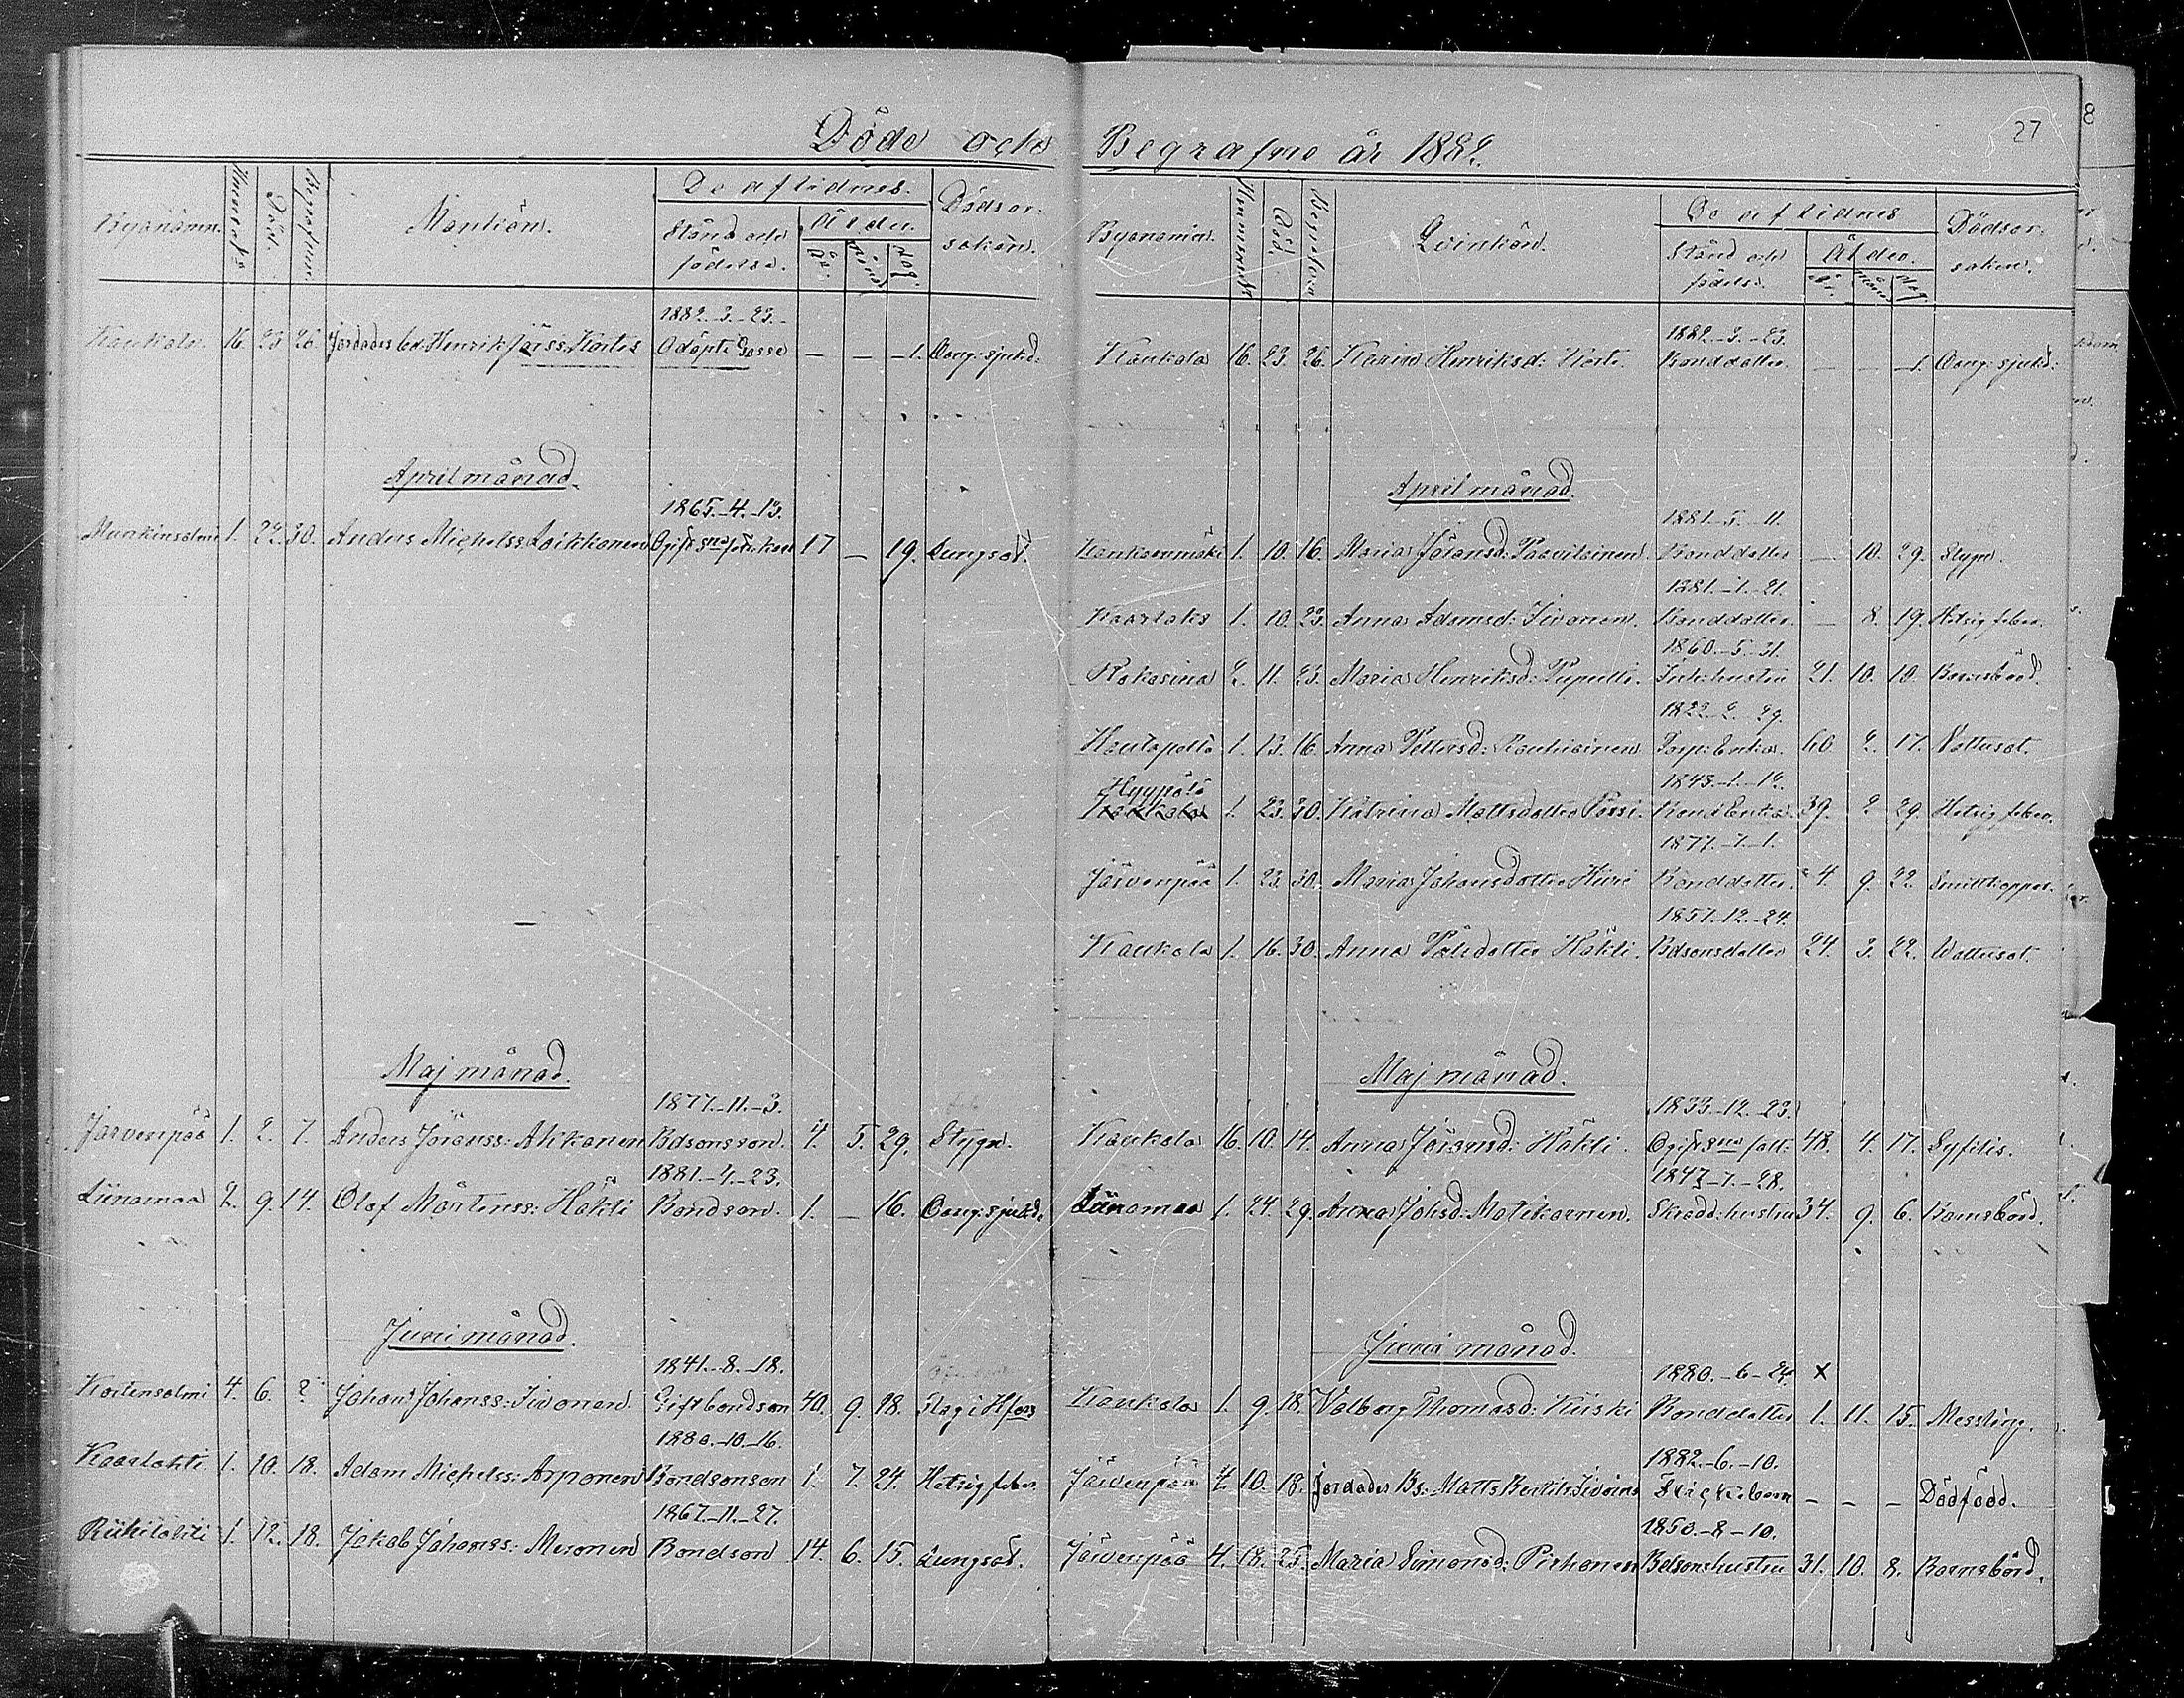 27
8
Döde och Begrafne år 1882.
Byanamn. Hmmantal Död. Begrafven Mankön. De aflidnes. Dödsor-
Stånd och födelse. Ålder. År. Mån. Dag. saken.
1882.-3.-23.
Kaukola. 16. 23. 26. Jordades bd. Henrik Jörss: Kortes Odöpte Gosse — — 1. Oang: sjukd:
April månad.
1865.-4.-13.
1. 22. 30. Anders Michelss: Loikkanen 17 — 19. Lungsot.
Maj månad.
1877.-11.-3.
Järvenpää 1. 2. 7. Anders Jöranss: Ahkanen Bdsonsson. 4. 5. 29. Stygn.
1881.-4.-23.
Liinamaa 2. 9. 14. Olof Mårtenss: Häkli Bondson. 1. — 16. Oang: sjukd.
Juni månad.
1841.-8.-18.
Kortensalmi 4. 6. 2. Johan Johanss: Iivonen. Gift bondson 40. 9. 18. Slag i Hfors
1880.-10.-16.
Kaarlahti. 1. 10. 18. Adam Michelss: Arponen Bondsonson 1. 7. 24. Hetsig feber.
1867.-11.-27.
Riihilahti 1. 12. 18. Jakob Johanss: Meronen Bondson 14. 6. 15. Lungsot.
Byanamn. Hmmantal Död. Begrafven Qvinkön. De aflidnes Dödsor-
Stånd och födelse. Ålder. År. Mån. Dag. saken.
1882.-3.-23.
Kaukola 16. 23. 26. Karin Henriksd: Korte. Bonddotter. — — 1. Oang: sjukd:
April månad.
1881.-5.-11.
1. 10. 16. Maria Göransd: Paavilainen. Bonddotter — 10. 29. Stygn.
1881.-1.-21.
Kaarlaks 1. 10. 23. Anna Adamsd: Iivonen. Bonddotter. — 8. 19. Hetsig feber.
1860.-5.-31.
Rokosina 2. 11. 23. Maria Henriksd: Pupulti. Inh: hustru 21. 10. 10. Barnsbörd.
1822.-2.-29.
Hautapelto 1. 13. 16. Anna Pettersd: Rauhiainen Torp: Enka. 60. 2. 17. Vattusot.
1843.-1.-12.
Hyypölä
Kaukola 1. 23. 30. Katrina Mattsdotter Pössi. Bond Enka 39. 2 29. Hetsig feber.
1877.-7.-1.
Järvenpää 1. 23. 30. Maria Johansdotter Hiiri Bonddotter. 4. 9. 22. Smittkoppor.
1857.-12.-24.
Kaukola 1. 16. 30. Anna Pålsdotter Häkli. Bdsonsdotter 24. 3. 22. Wattusot.
Maj månad.
1833.-12.-23.
Kaukola 16. 10. 14. Anna Jöransd: Häkli. 48. 4. 17. Syfilis.
1847.-7.-28.
Liinamaa 1. 24. 29. Anna Johsd: Matikainen. Skrädd: hustru 34. 9. 6. Barnsbörd.
Juni månad.
1880.-6-24. x
Kaukola 1. 9. 18. Walborg Thomasd: Kiiski Bonddotter 1. 11. 15. Messling.
1882.-6.-10.
Järvenpää 4. 10. 18. Jordades Bs: Matts Bertils Iivoins Flickebarn — — — Dödfödd.
1850.-8-10.
Järvenpää 4. 18. 25. Maria Simonsd: Pirhonen Bdsonshustru 31. 10. 8. Barnsbörd.